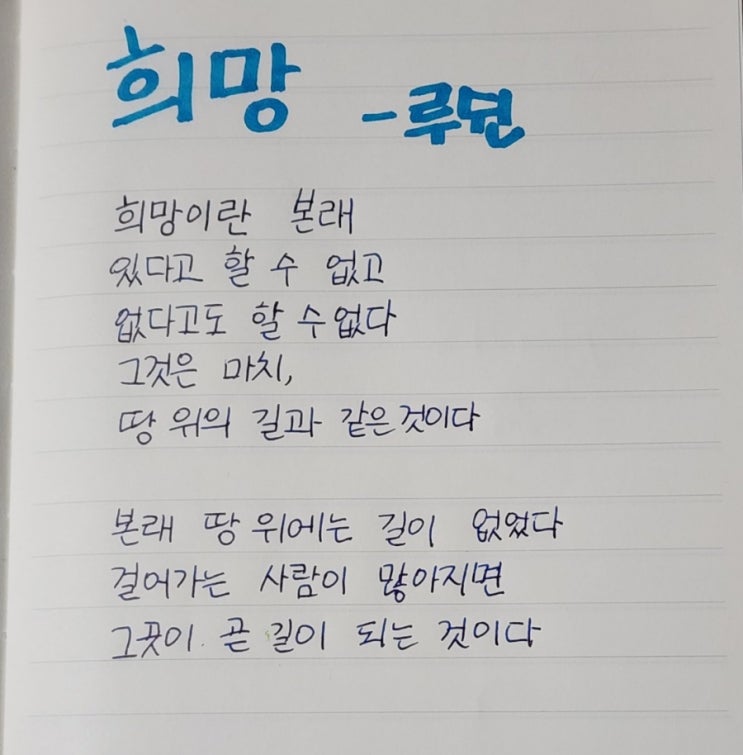 희망 - 루쉰
희망이란 본래
있다고 할 수 없고
없다고도 할 수 없다
그것은 마치,
땅 위의 길과 같은 것이다
본래 땅 위에는 길이 없었다
걸어가는 사람이 많아지면
그곳이 곧 길이 되는 것이다